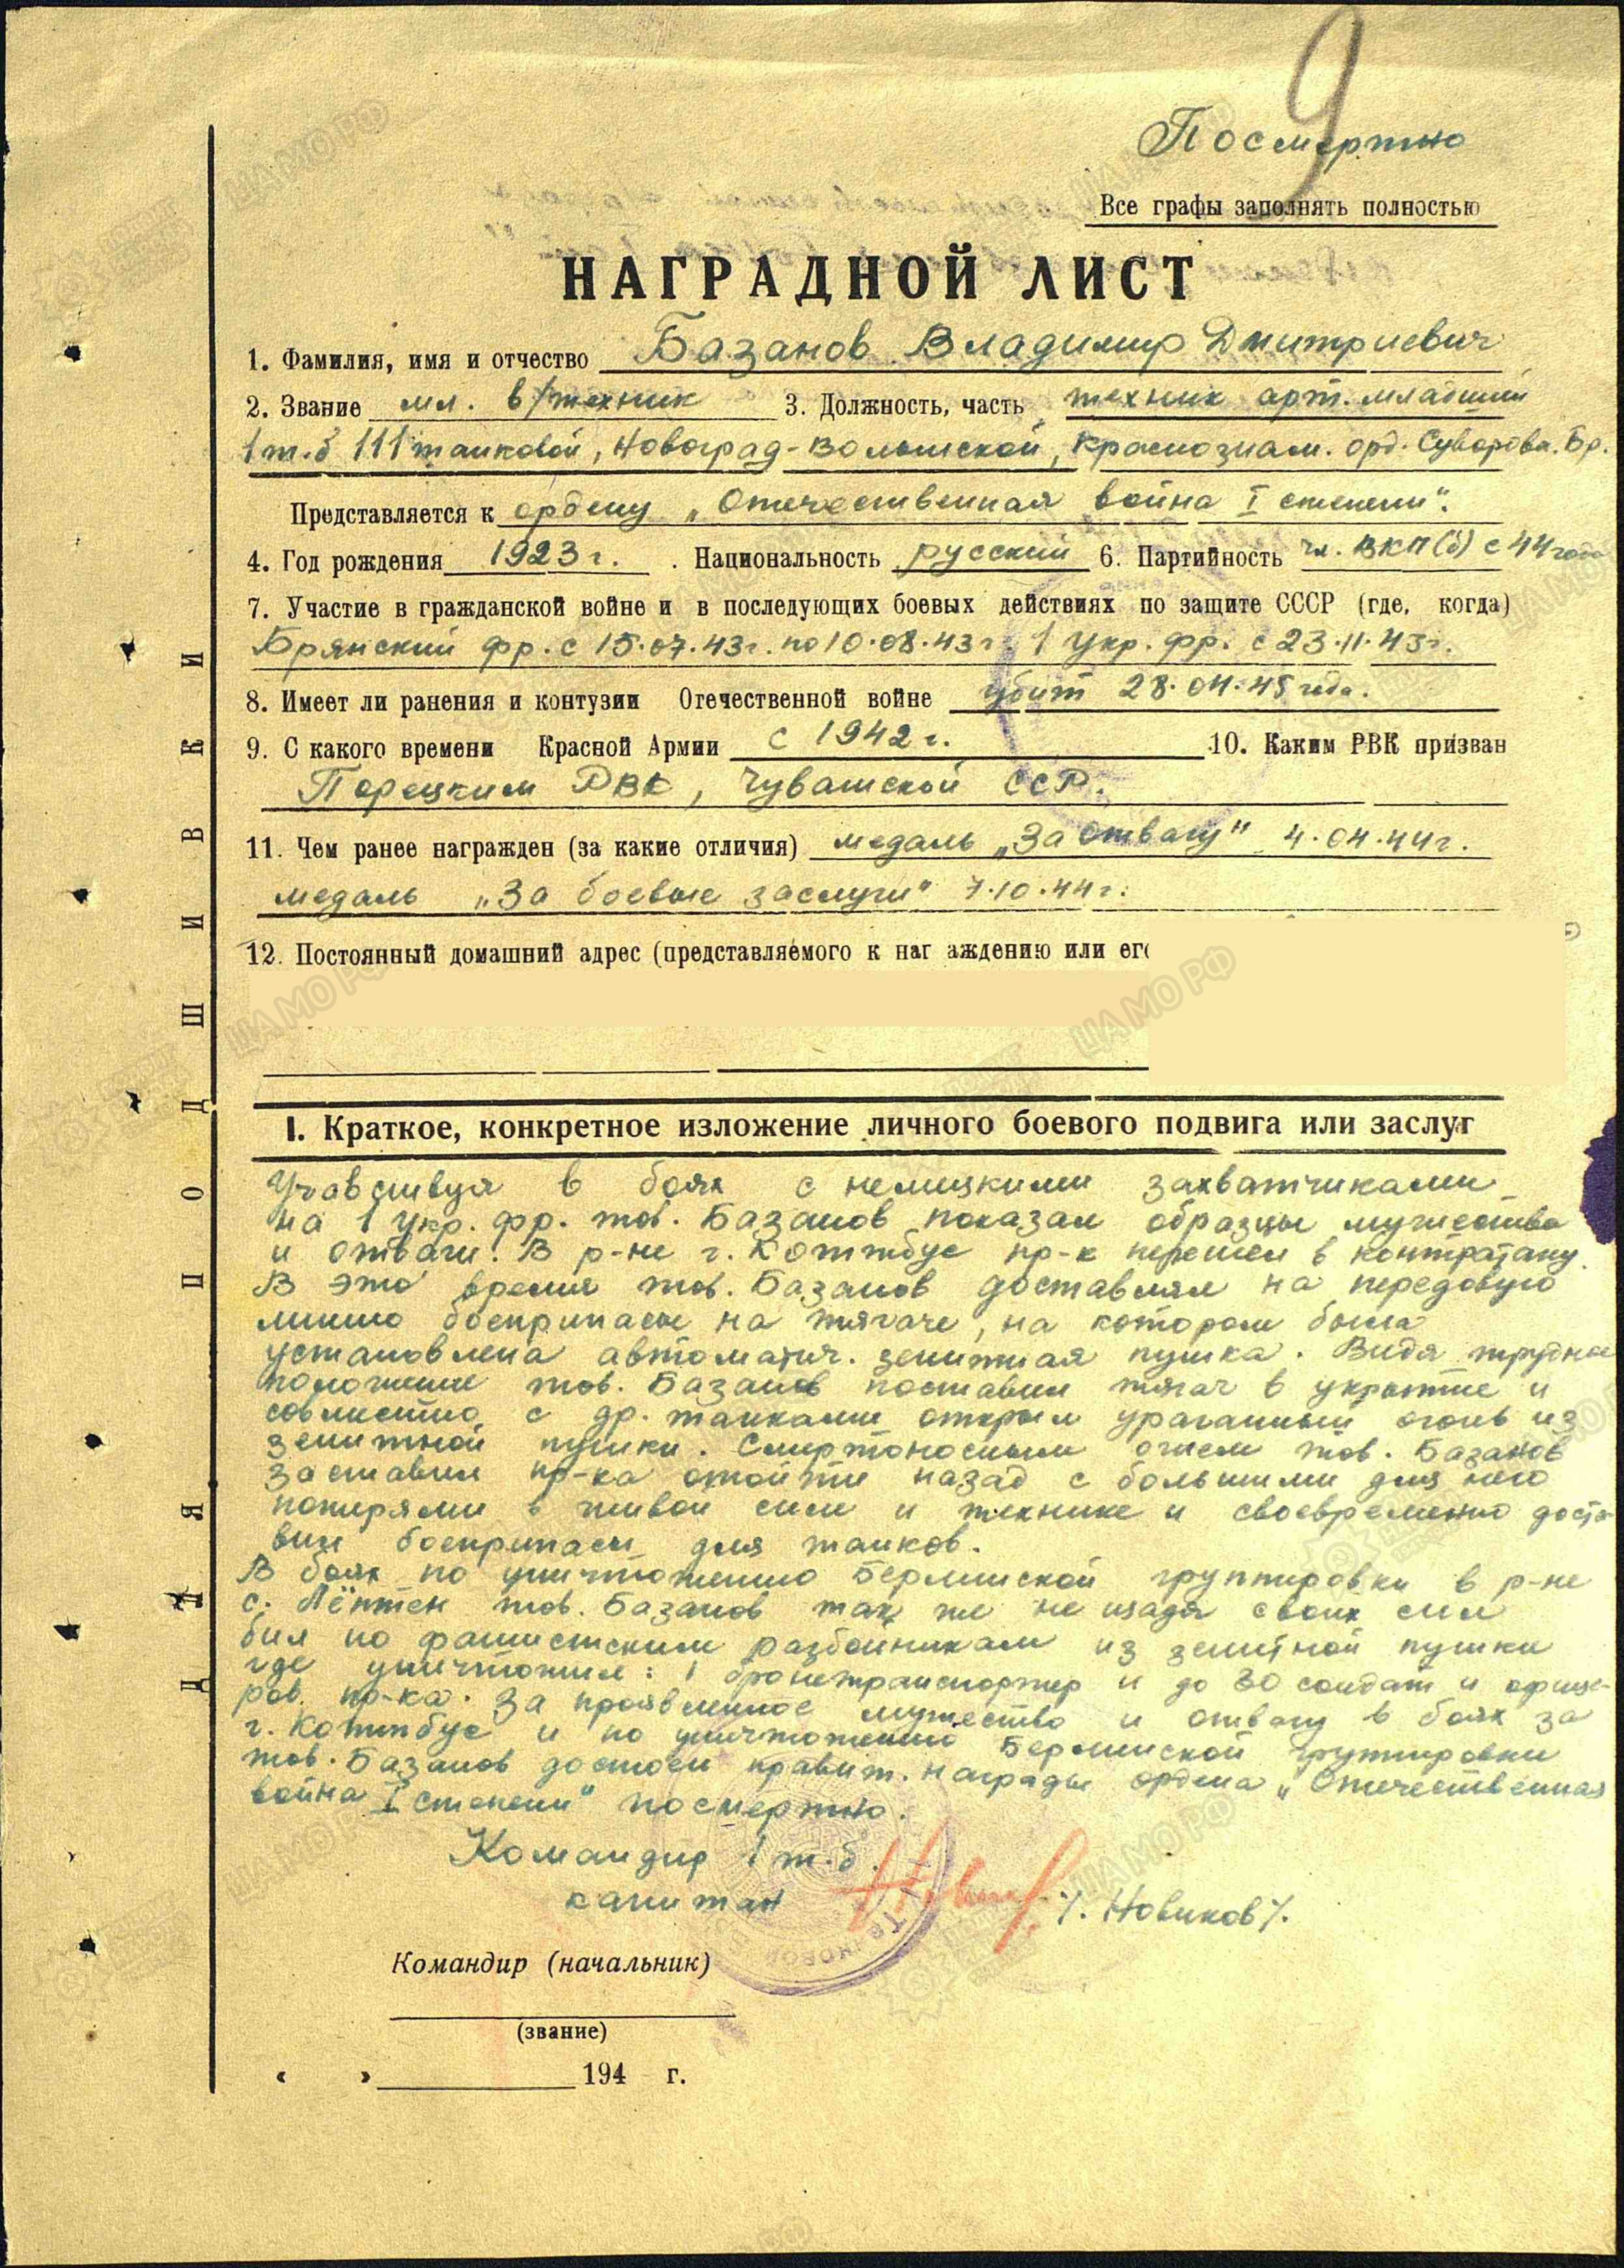 9
Посмертно
Все графы заполнять полностью
НАГРАДНОЙ ЛИСТ
1. Фамилия, имя и отчество Базанов Владимир Дмитриевич
2. Звание мл. в/техник 3. Должность, часть техник арт. младший
1 т.б 111 танковой, Новоград-Волынской, Краснознам. орд. Суворова. Бр.
Представляется к ордену „Отечественная война I степени".
4. Год рождения 1923 г. . Национальность русский 6. Партийность чл. ВКП(б) с 44 года
7. Участие в гражданской войне и в последующих боевых действиях по защите СССР (где, когда)
Брянский фр. с 15.07.43 г. по 10.08.43 г. 1 Укр. фр. с 23.11.43 г.
8. Имеет ли ранения и контузии Отечественной войне убит 28.04.45 года.
9. С какого времени Красной Армии с 1942 г. 10. Каким РВК призван
Порецким РВК, Чувашской ССР.
11. Чем ранее награжден (за какие отличия) медаль „За отвагу" 4.04.44 г.
медаль „За боевые заслуги" 7.10.44 г.
12. Постоянный домашний адрес (представляемого к наг аждению или его
1. Краткое, конкретное изложение личного боевого подвига или заслуг
Учавствуя в боях с немецкими захватчиками
на 1 Укр. фр. тов. Базанов показал образцы мужества
и отваги. В р-не г. Коттбус пр-к перешел в контратаку.
В это время тов. Базанов доставлял на передовую
линию боеприпасы на тягаче, на котором была
установлена автоматич. зенитная пушка. Видя трудное
положение тов. Базанов поставил тягач в укрытие и
совместно с др. танками открыл ураганный огонь из
зенитной пушки. Смертоносным огнем тов. Базанов
заставил пр-ка отойти назад с большими для него
потерями в живой силе и технике и своевременно доста-
вил боеприпасы для танков.
В боях по уничтожению Берлинской группировки в р-не
с. Лёптен тов. Базанов так же не щадя своих сил
бил по фашистским разбойникам из зенитной пушки
где уничтожил: 1 бронетранспортер и до 30 солдат и офице-
ров. пр-ка. За проявленное мужество и отвагу в боях за
г. Коттбус и по уничтожению Берлинской группировки
тов. Базанов достоен правит. награды ордена „Отечественная
война I степени" посмертно.
Командир 1 т.б.
капитан /. Новиков /.
Командир (начальник)
(звание)
« » 194 г.
ДЛЯ ПОДШИВКИ
ЦАМО РФ